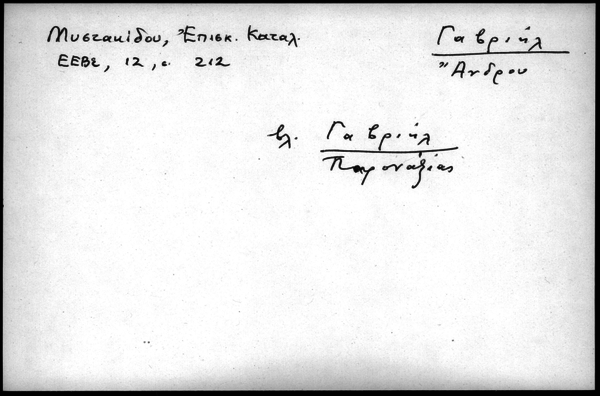 Μυστακίδου, Ἐπισκ. Καταλ.
ΕΕΒΣ, 12, σ. 212
Γαβριήλ
Ἄνδρου
βλ. Γαβριήλ
Παροναξίας